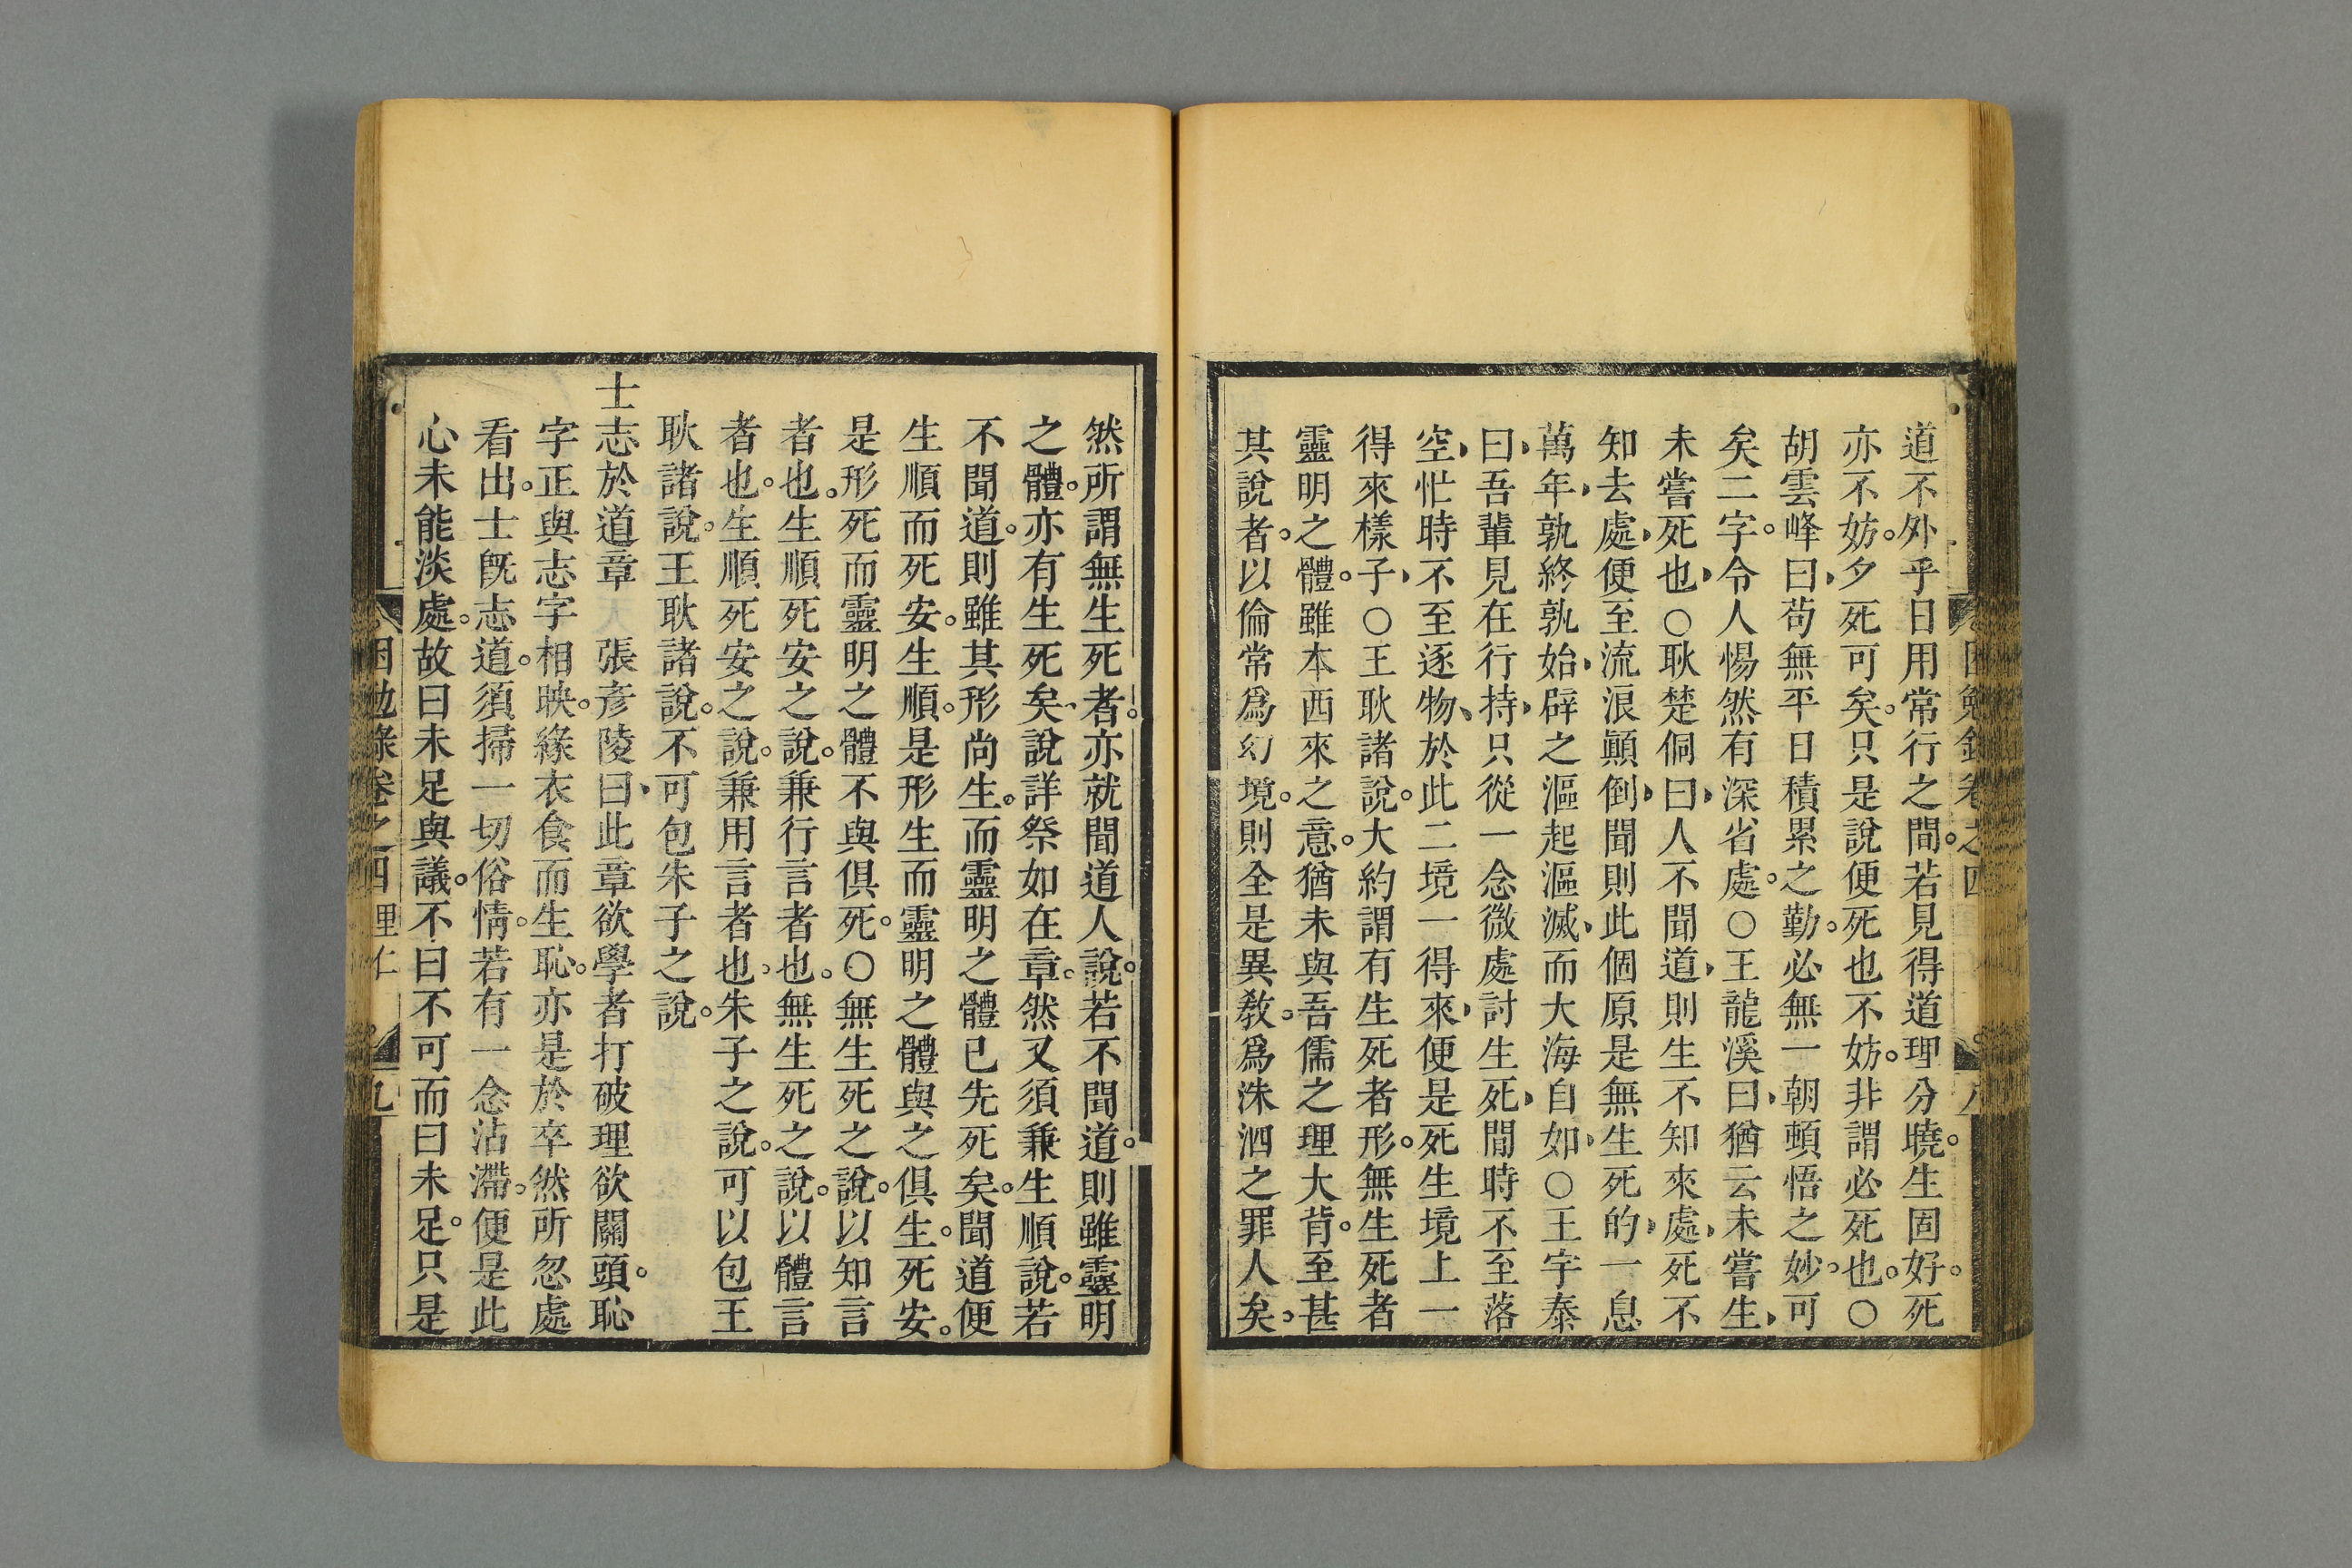 道不外乎日用常行之間。若見得道理分曉。生固好。死
亦不妨。夕死可矣。只是說便死也不妨。非謂必死也。○
胡雲峰曰、苟無平日積累之勤。必無一朝頓悟之妙。可
矣二字。令人惕然有深省處。○王龍溪曰、猶云未嘗生、
未嘗死也、○耿楚侗曰、人不聞道、則生不知來處、死不
知去處、便至流浪顚倒、聞則此個原是無生死的、一息
萬年、孰終孰始、辟之漚起漚滅、而大海自如、○王宇泰
曰、吾輩見在行持、只從一念微處討生死、閒時不至落
空、忙時不至逐物、於此二境一得來、便是死生境上一
得來樣子、○王耿諸說。大約謂有生死者形。無生死者
靈明之體。雖本西來之意。猶未與吾儒之理大背。至甚
其說者。以倫常爲幻境。則全是異敎。爲洙泗之罪人矣。
然所謂無生死者。亦就聞道人說。若不聞道。則雖靈明
之體。亦有生死矣、說詳祭如在章。然又須兼生順說。若
不聞道。則雖其形尚生。而靈明之體已先死矣。聞道便
生順而死安。生順。是形生而靈明之體與之俱生。死安。
是形死而靈明之體不與俱死。○無生死之說。以知言
者也。生順死安之說。兼行言者也。無生死之說。以體言
者也。生順死安之說。兼用言者也。朱子之說。可以包王
耿諸說。王耿諸說。不可包朱子之說。
士志於道章 張彥陵曰、此章欲學者打破理欲關頭。恥
字正與志字相映。緣衣食而生恥。亦是於卒然所忽處
看出。士旣志道。須掃一切俗情。若有一念沾滯。便是此
心未能淡處。故曰未足與議。不曰不可而曰未足。只是
困勉錄卷之四 里仁 九